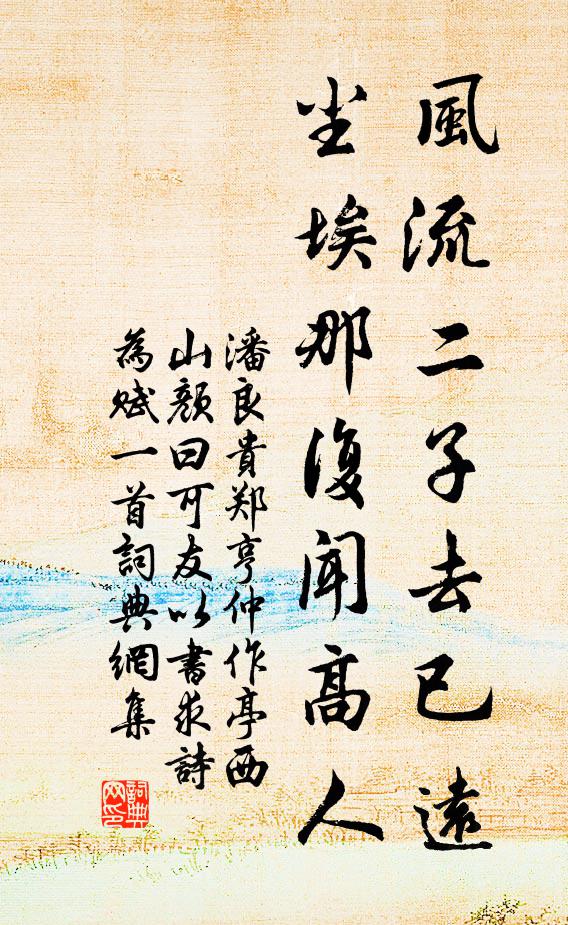 風流二子去已遠
尘埃那復聞高人
潘良貴郑亨仲作亭西
山顏曰可友以書求詩
為赋一首詞典網集
詞典网印